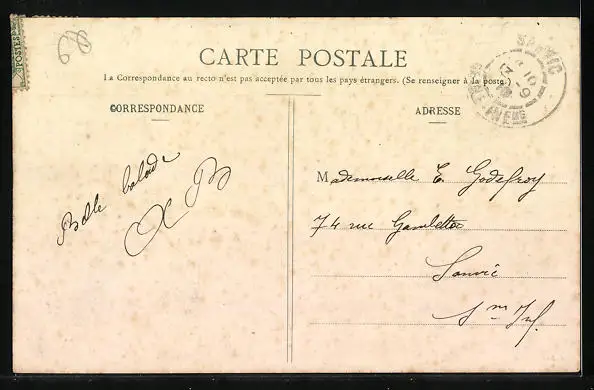 POSTES
68
CARTE POSTALE
La Correspondance au recto n'est pas acceptée par tous les pays étrangers. (Se renseigner à la poste.)
CORRESPONDANCE
ADRESSE
SANVIC
SEINE INFRE
Belle balade
Mademoiselle E. Godefroy
74 rue Gambetta
Sanvic
Sne Inf.